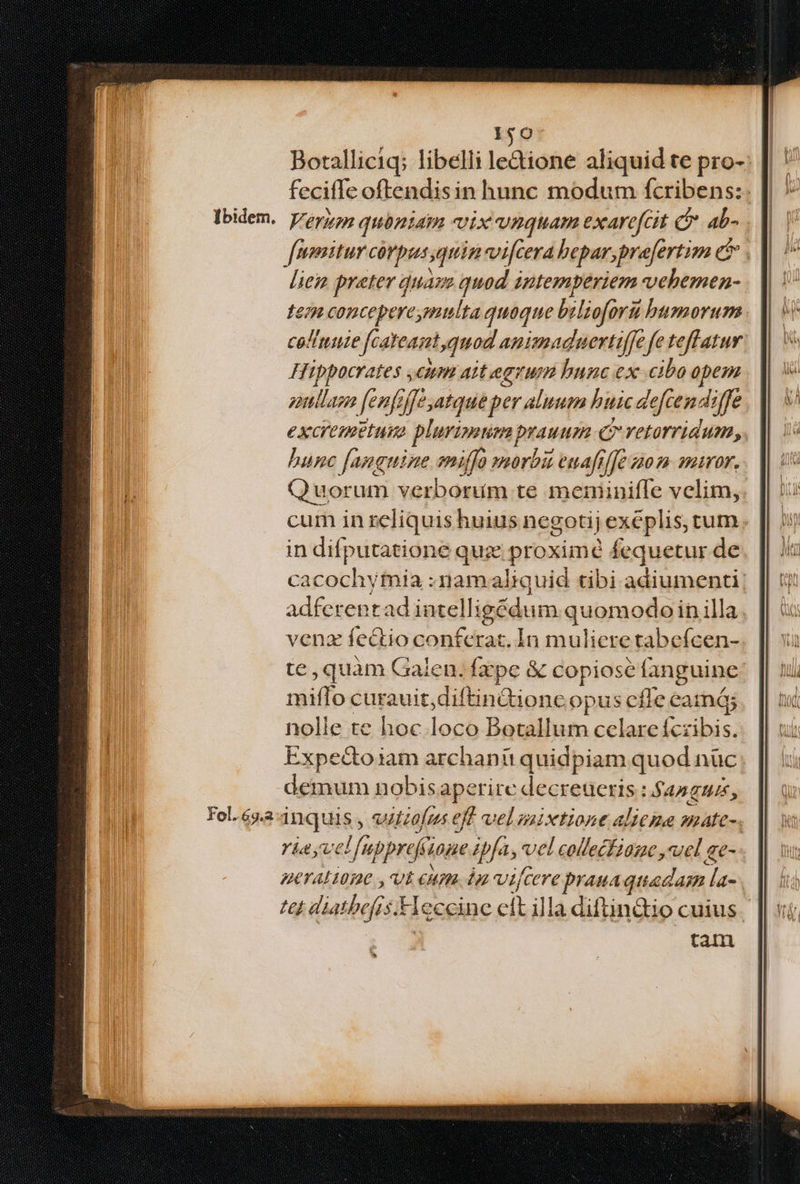 150
Botalliciq; libelli lectione aliquid te pro-
feciſſe oſtendis in hunc modum ſcribens:
Ibidem. Verùm quoniam vix vnquam exareſcit & ab-
ſumitur corpus, quin viſcera hepar, præſertim &
lien præter quàm quod intemperiem vehemen-
tem concepere, multa quoque bilioſorũ humorum
colluuie ſcateant, quod animaduertiſſe ſe teſtatur
Hippocrates, cum ait ægrum hunc ex cibo opem
nullam ſenſiſſe, atque per aluum huic deſcendiſſe
excremẽtum plurimum prauum & retorridum,
hunc ſanguine miſſo morbũ euaſiſſe non miror.
Quorum verborum te meminiſſe velim,
cum in reliquis huius negotij exẽplis, tum
in diſputatione quæ proximè ſequetur de
cacochymia : nam aliquid tibi adiumenti
adferent ad intelligẽdum quomodo in illa
venæ ſectio conferat. In muliere tabeſcen-
te, quàm Galen. ſæpe & copiosè ſanguine
miſſo curauit, diſtinctione opus eſſe eamq́;
nolle te hoc loco Botallum celare ſcribis.
Expecto iam archanũ quidpiam quod nũc
demum nobis aperire decreueris : Sanguis,
Fol. 69.a inquis, vitioſus eſt vel mixtione alienæ mate-
riæ, vel ſuppreſsione ipſa, vel collectione, vel ge-
neratione, vt cum in viſcere praua quadam la-
tet diatheſis. Heccine eſt illa diſtinctio cuius
tam